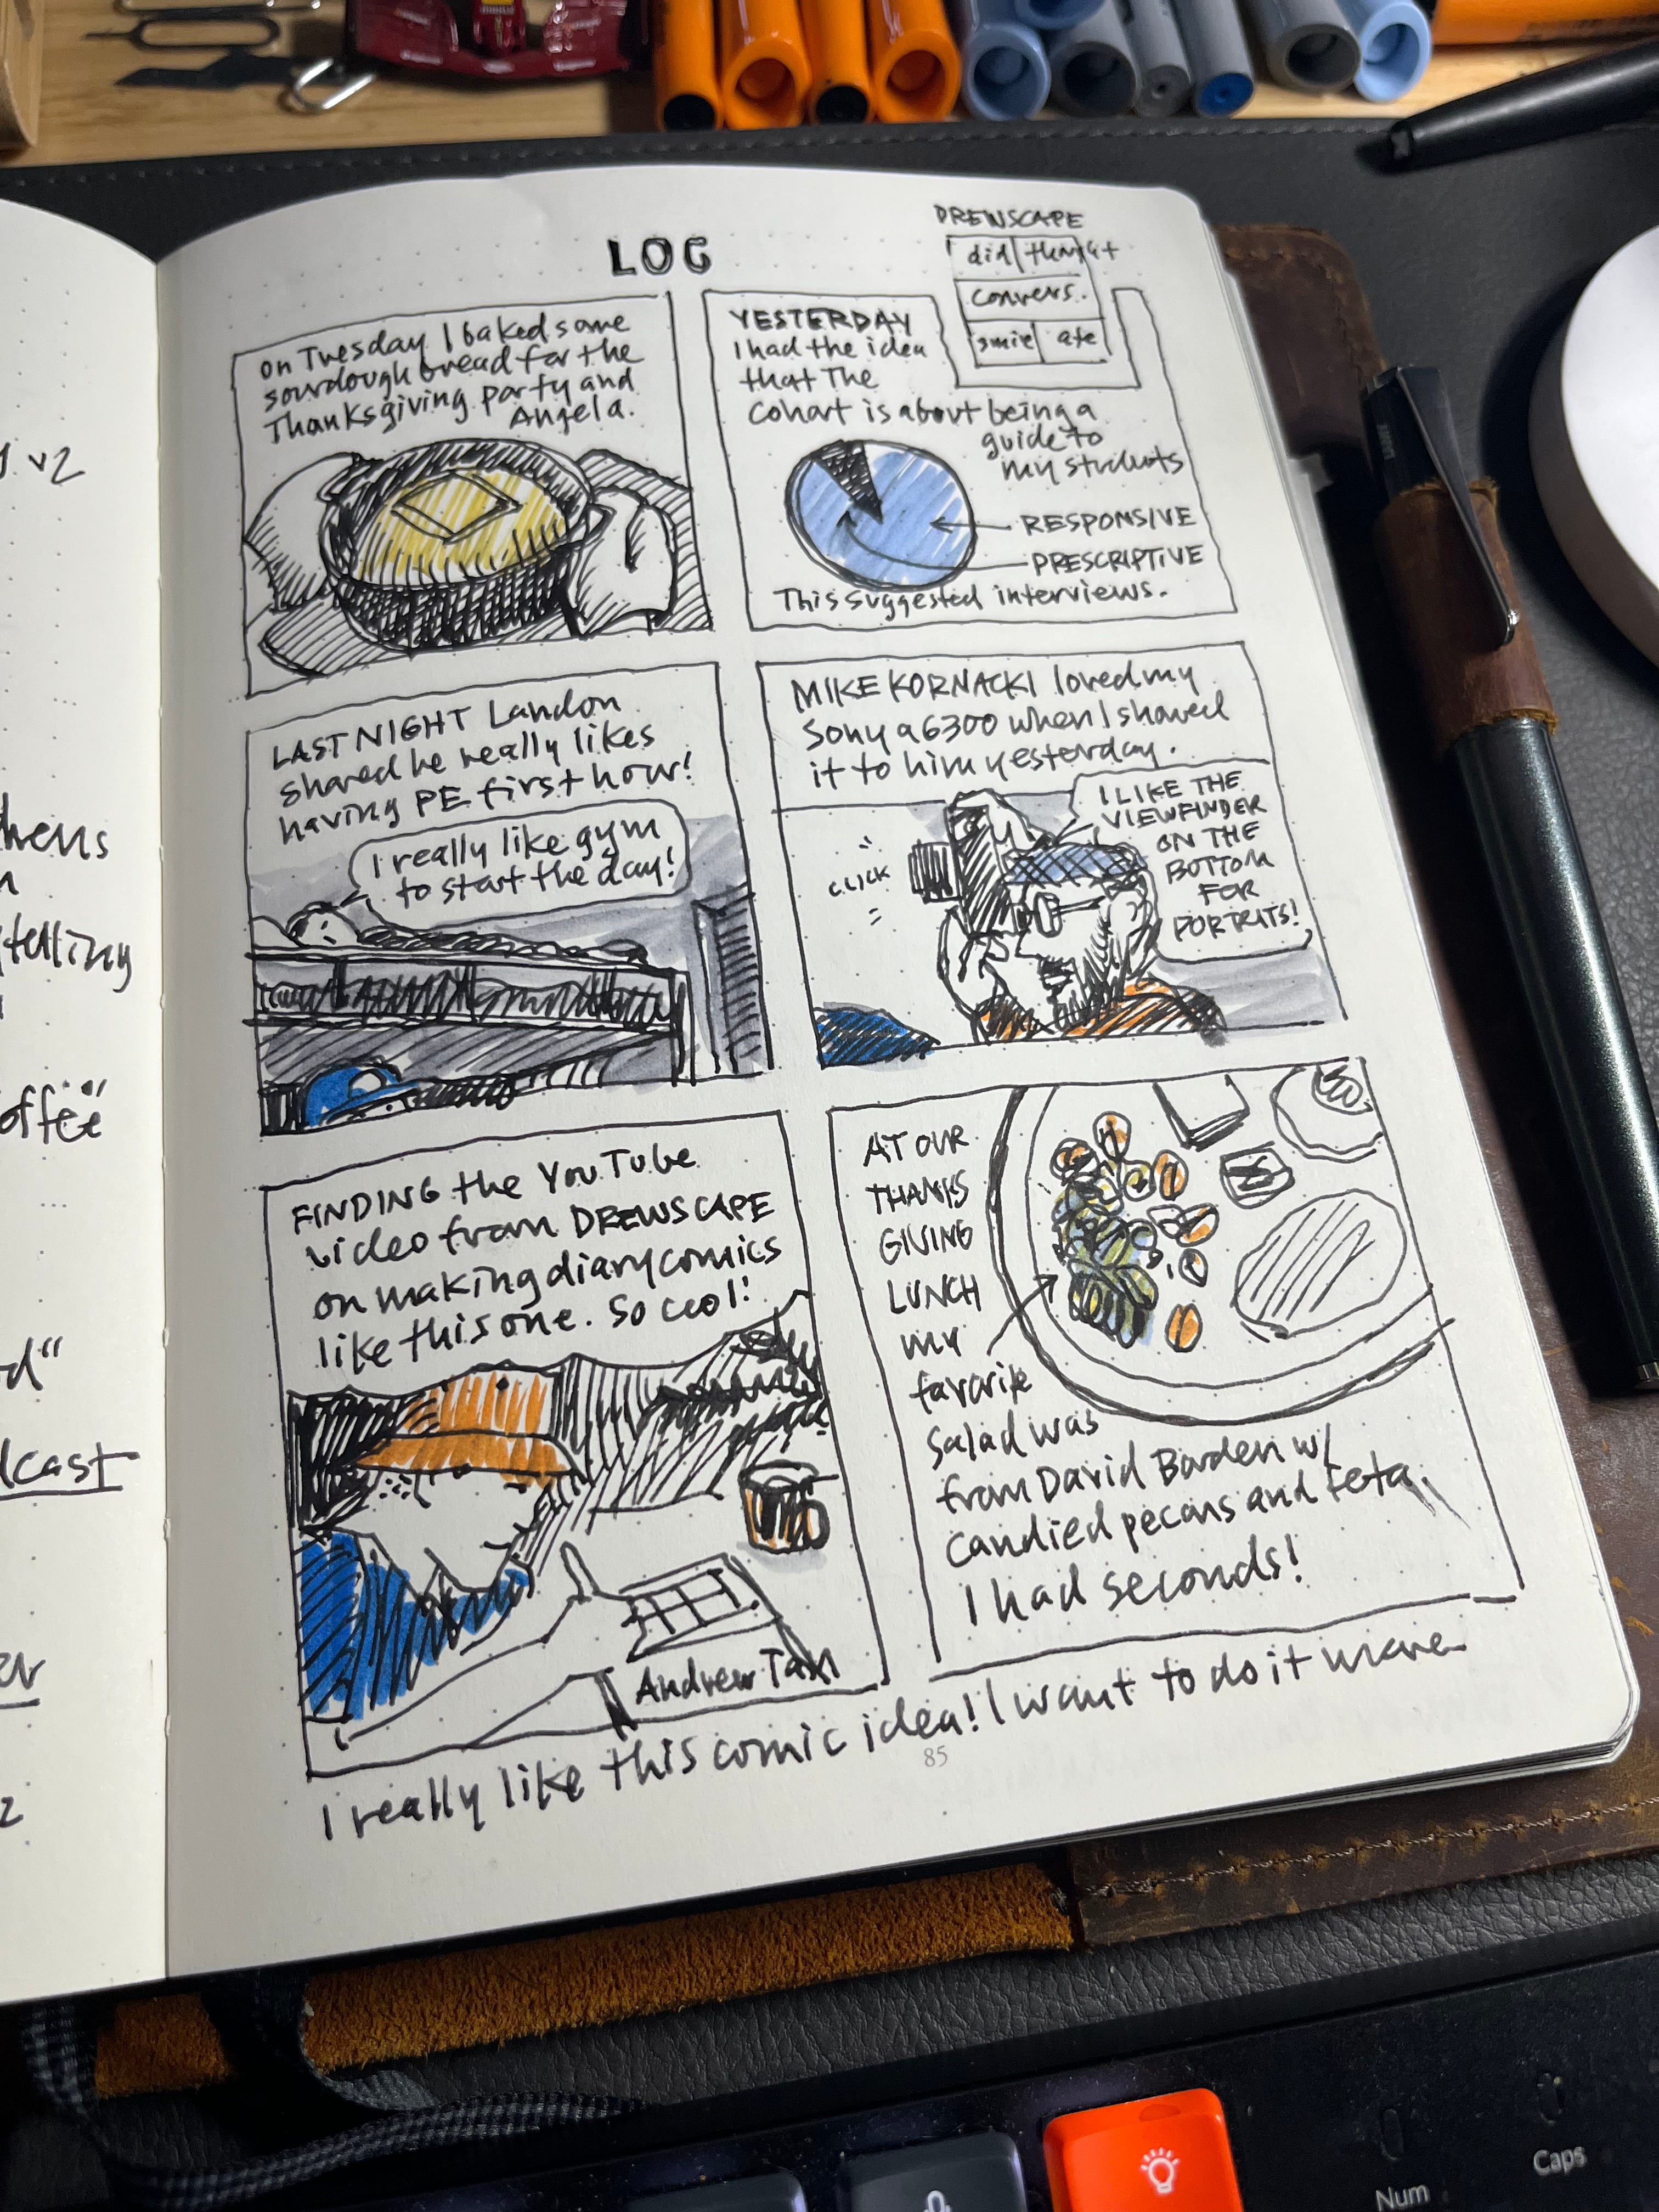 v2
hens
telling
offee
d"
dcast
er
2
LOG
DREWSCAPE
did
convers.
smile
ate
On Tuesday I baked some
sourdough bread for the
Thanksgiving party and
Angela.
YESTERDAY
I had the idea
that the
cohort is about being a
guide to
my students
RESPONSIVE
PRESCRIPTIVE
This suggested interviews.
LAST NIGHT Landon
shared he really likes
having PE first hour!
I really like gym
to start the day!
MIKE KORNACKI loved my
Sony a6300 when I shared
it to him yesterday.
CLICK
I LIKE THE
VIEWFINDER
ON THE
BOTTOM
FOR
PORTRAITS!
FINDING the YouTube
video from DREWSCAPE
on making diary comics
like this one. So cool!
Andrew Tan
AT OUR
THANKS
GIVING
LUNCH
my
favorite
salad was
from David Borden w/
candied pecans and feta
I had seconds!
I really like this comic idea! I want to do it more
85
Num
Caps